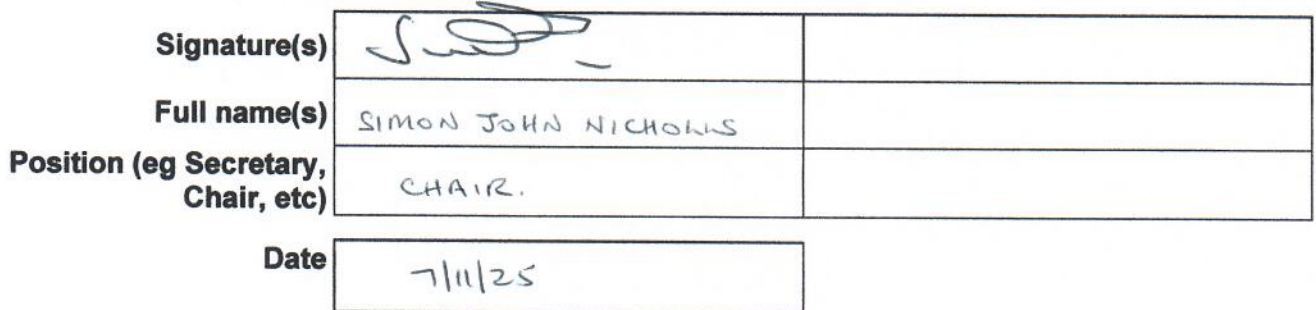 Signature(s)
Full name(s) SIMON JOHN NICHOLLS
Position (eg Secretary,
Chair, etc) CHAIR.
Date 7/11/25